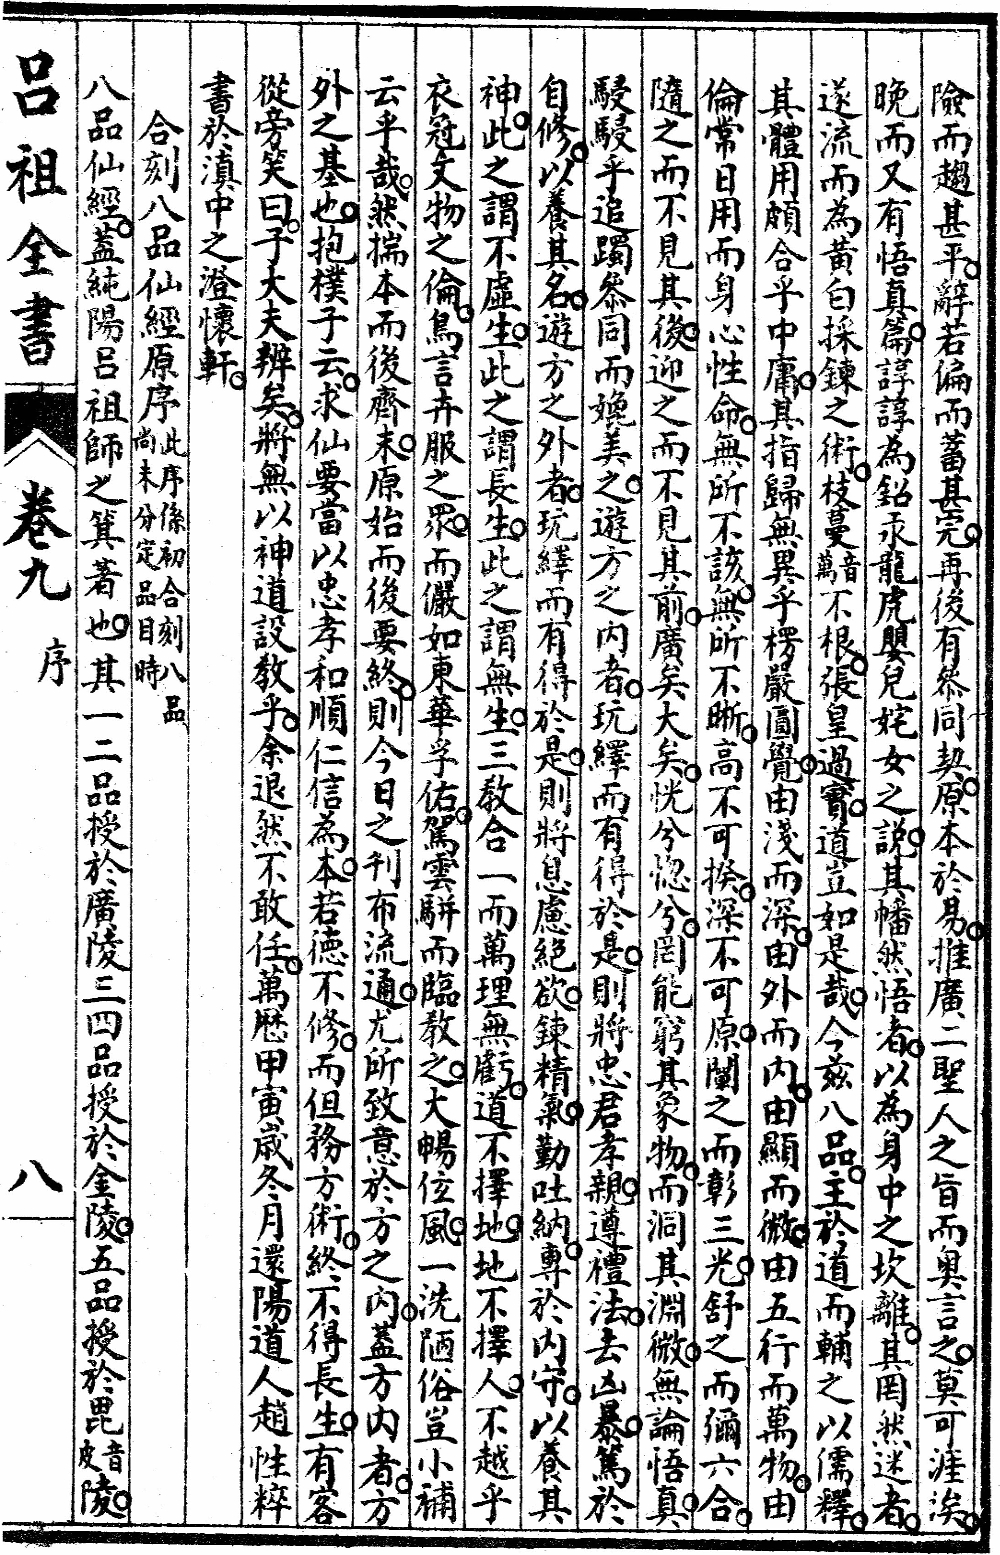 險而趨甚平辭若偏而蓄甚完再後有叅同契原本於易推廣二聖人之旨而奧言之莫可涯涘
晚而又有悟真篇諄諄為鉛汞龍虎嬰兒姹女之說其幡然悟者以為身中之坎離其罔然迷者
遂流而為黃白採鍊之術枝蔓音萬不根張皇過實道豈如是哉今茲八品主於道而輔之以儒釋
其體用頗合乎中庸其指歸無異乎楞嚴圓覺由淺而深由外而內由顯而微由五行而萬物由
倫常日用而身心性命無所不該無所不晰高不可揆深不可原闡之而彰三光舒之而彌六合
隨之而不見其後迎之而不見其前廣矣大矣恍兮惚兮罔能窮其象物而洞其淵微無論悟真
駸駸乎追躅叅同而媲美之遊方之內者玩繹而有得於是則將忠君孝親遵禮法去凶暴篤於
自修以養其名遊方之外者玩繹而有得於是則將息慮絕欲鍊精氣勤吐納專於內守以養其
神此之謂不虛生此之謂長生此之謂無生三教合一而萬理無虧道不擇地地不擇人不越乎
衣冠文物之倫鳥言卉服之眾而儼如東華孚佑駕雲駢而臨教之大暢仙風一洗陋俗豈小補
云乎哉然揣本而後齊末原始而後要終則今日之刊布流通尤所致意於方之內蓋方內者方
外之基也抱樸子云求仙要當以忠孝和順仁信為本若德不修而但務方術終不得長生有客
從旁笑曰子大夫辨矣將無以神道設教乎余退然不敢任萬歷甲寅歲冬月還陽道人趙性粹
書於滇中之澄懷軒
合刻八品仙經原序此序係初合刻八品尚未分定品目時
八品仙經蓋純陽呂祖師之箕著也其一二品授於廣陵三四品授於金陵五品授於毘音皮陵
呂祖全書 卷九 序 八